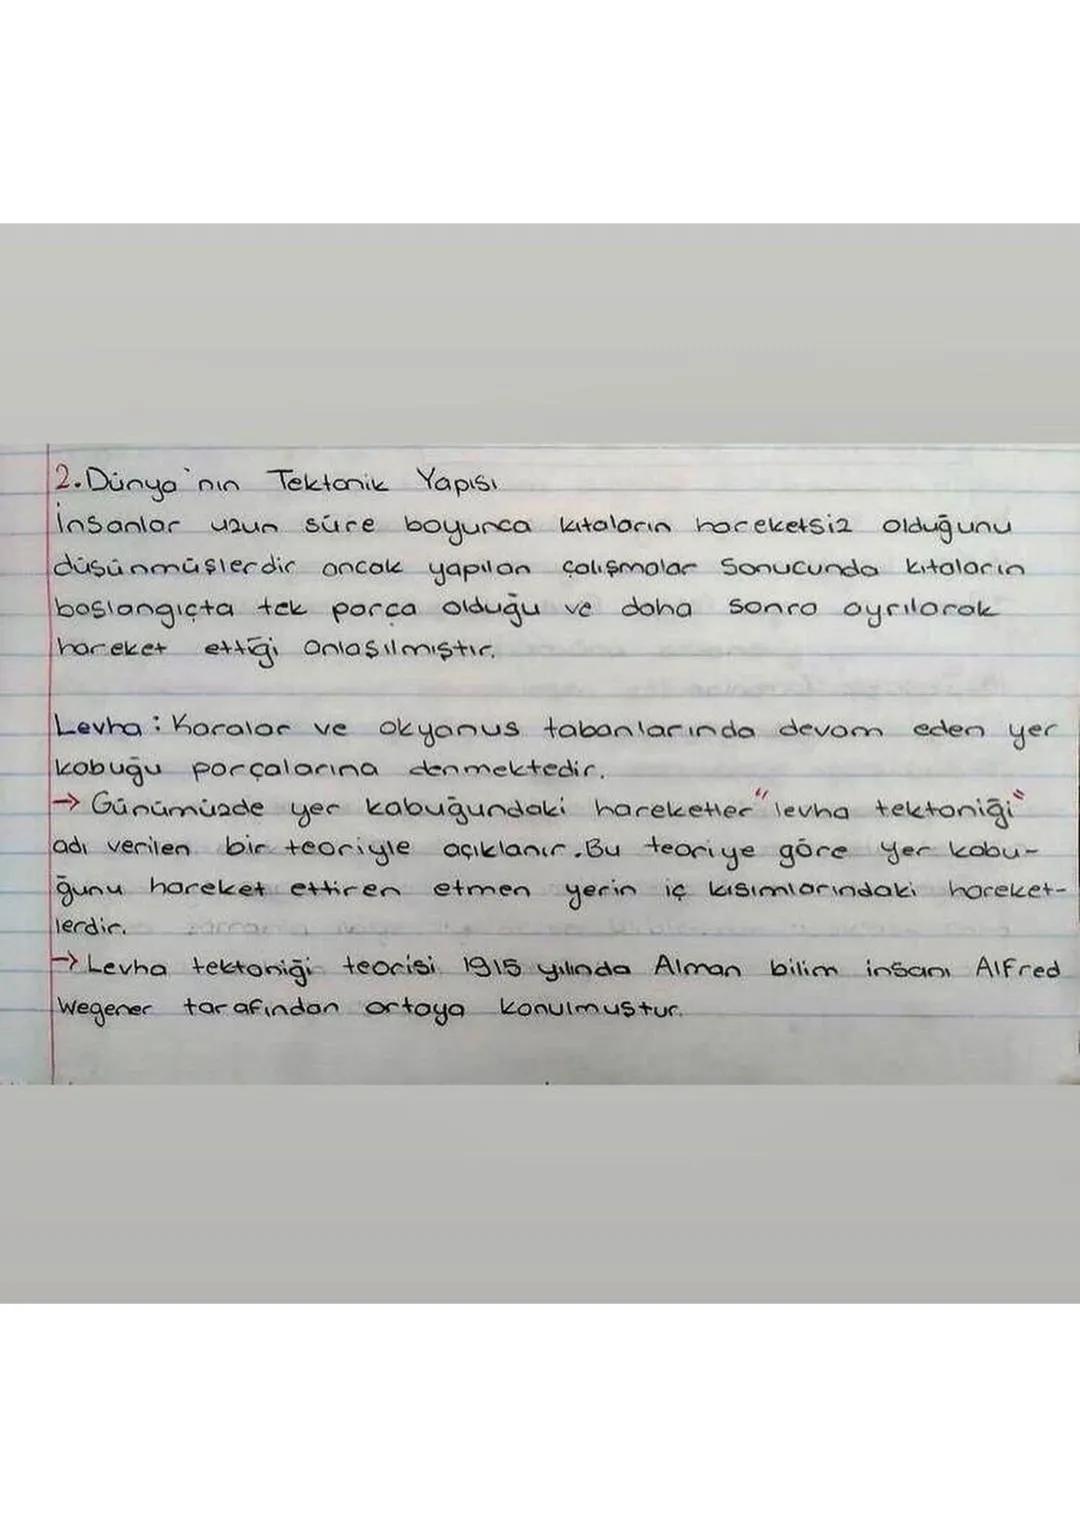 2. Dünya'nın Tektonik Yapısı
İnsanlar uzun süre boyunca kıtaların hareketsiz olduğunu
düşünmüşlerdir ancak yapılan çalışmalar sonucunda kıtaların
başlangıçta tek parça olduğu ve daha sonra ayrılarak
hareket ettiği anlaşılmıştır.
Levha : Karalar ve okyanus tabanlarında devam eden yer
kabuğu parçalarına denmektedir.
→ Günümüzde yer kabuğundaki hareketler "levha tektoniği"
adı verilen bir teoriyle açıklanır. Bu teoriye göre yer kabu-
ğunu hareket ettiren etmen yerin iç kısımlarındaki hareket-
lerdir.
→ Levha tektoniği teorisi 1915 yılında Alman bilim insanı Alfred
Wegener tarafından ortaya konulmuştur.